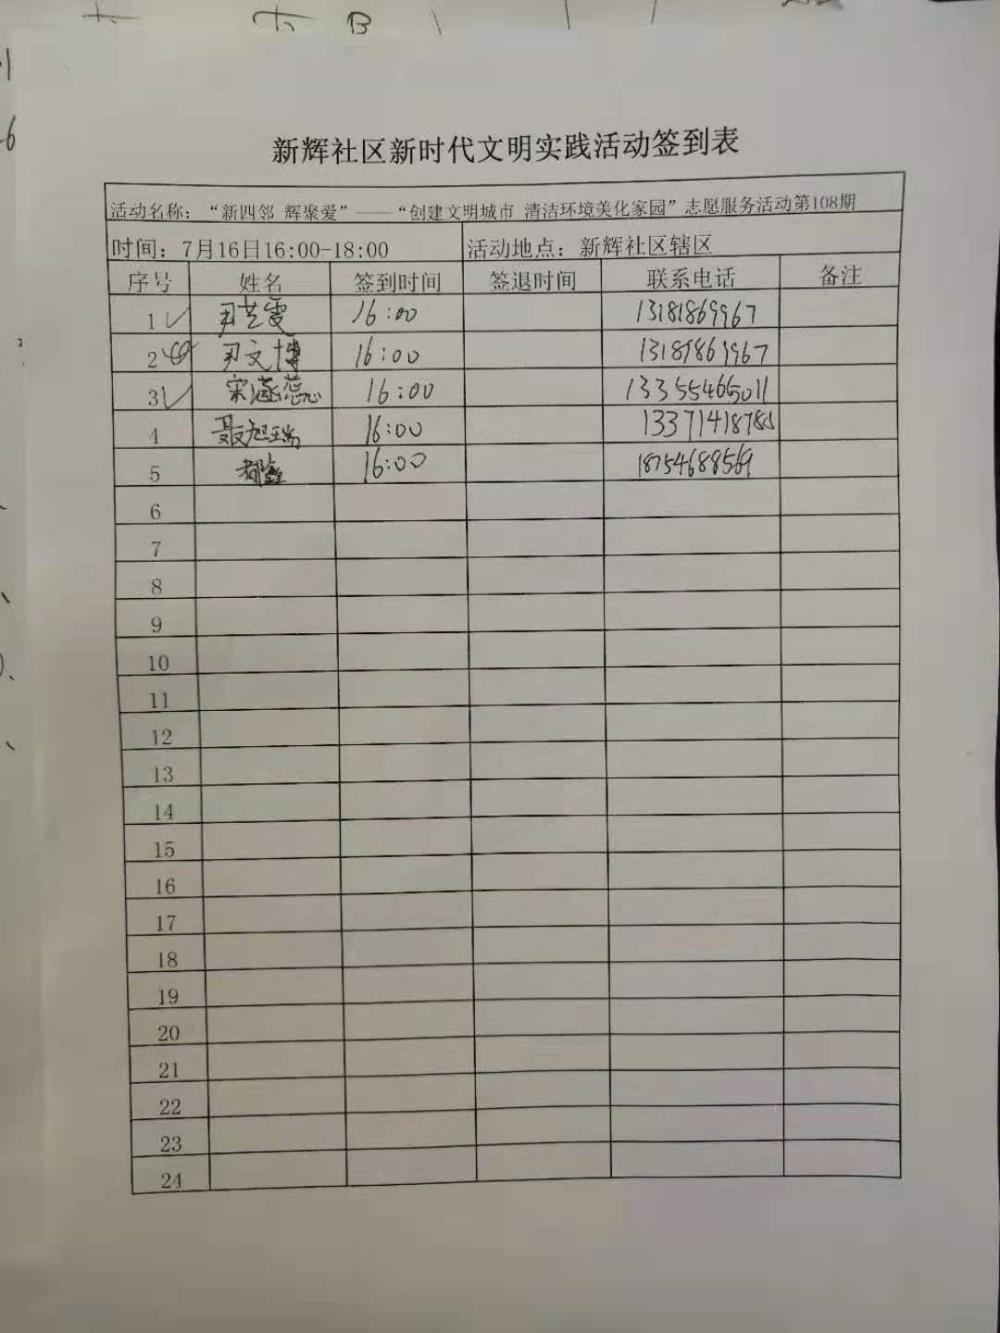 新辉社区新时代文明实践活动签到表
活动名称：“新四邻 辉聚爱”——“创建文明城市 清洁环境美化家园”志愿服务活动第108期
时间：7月16日16:00-18:00 活动地点：新辉社区辖区
序号 姓名 签到时间 签退时间 联系电话 备注
1 尹艺霞 16:00 13181869967
2 尹文博 16:00 13181869967
3 宋涵蕊 16:00 13355465011
4 聂旭瑞 16:00
5 都鑫 16:00 18754688569
6
7
8
9
10
11
12
13
14
15
16
17
18
19
20
21
22
23
24